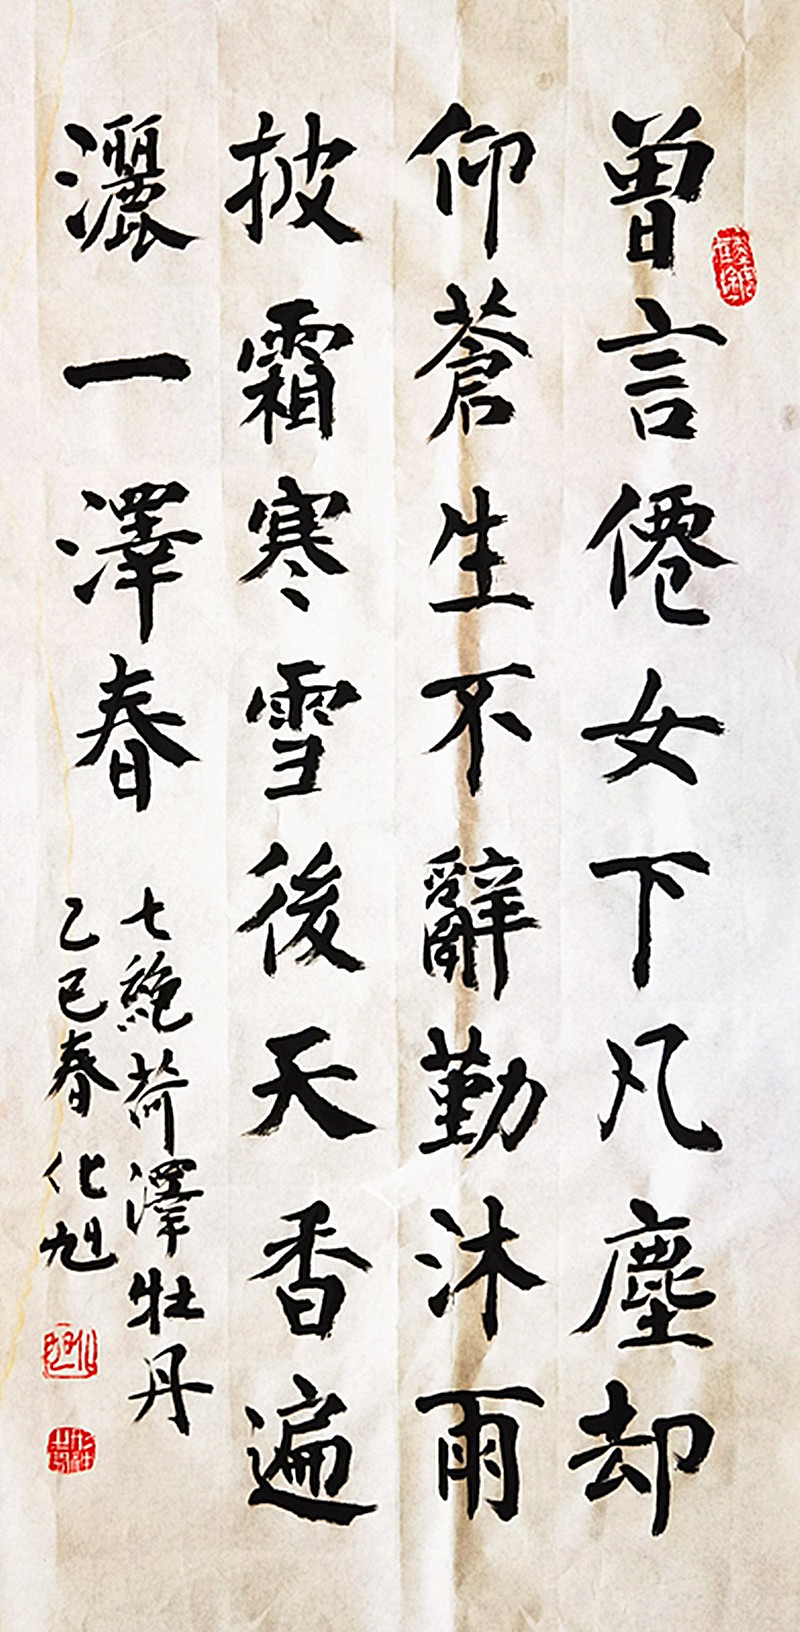 曾言僊女下凡塵却
仰蒼生不辭勤沐雨
披霜寒雪後天香遍
灑一澤春
七絕荷澤牡丹
乙巳春化旭